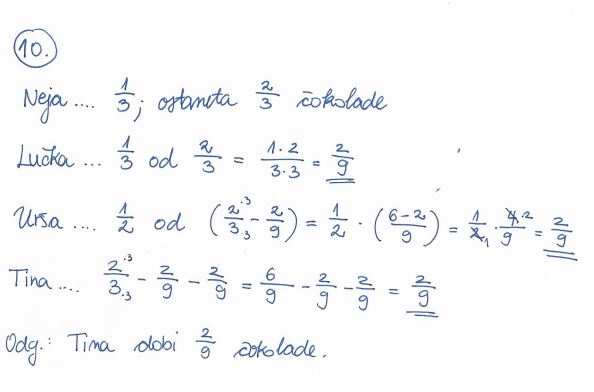 10.
Neja .... 1/3; ostaneta 2/3 čokolade
Lučka ... 1/3 od 2/3 = 1·2/3·3 = 2/9
Urša .... 1/2 od (2·3/3·3 - 2/9) = 1/2 · (6-2/9) = 1/2 1 · 4 2/9 = 2/9
Tina .... 2·3/3·3 - 2/9 - 2/9 = 6/9 - 2/9 - 2/9 = 2/9
Odg.: Tina dobi 2/9 čokolade.